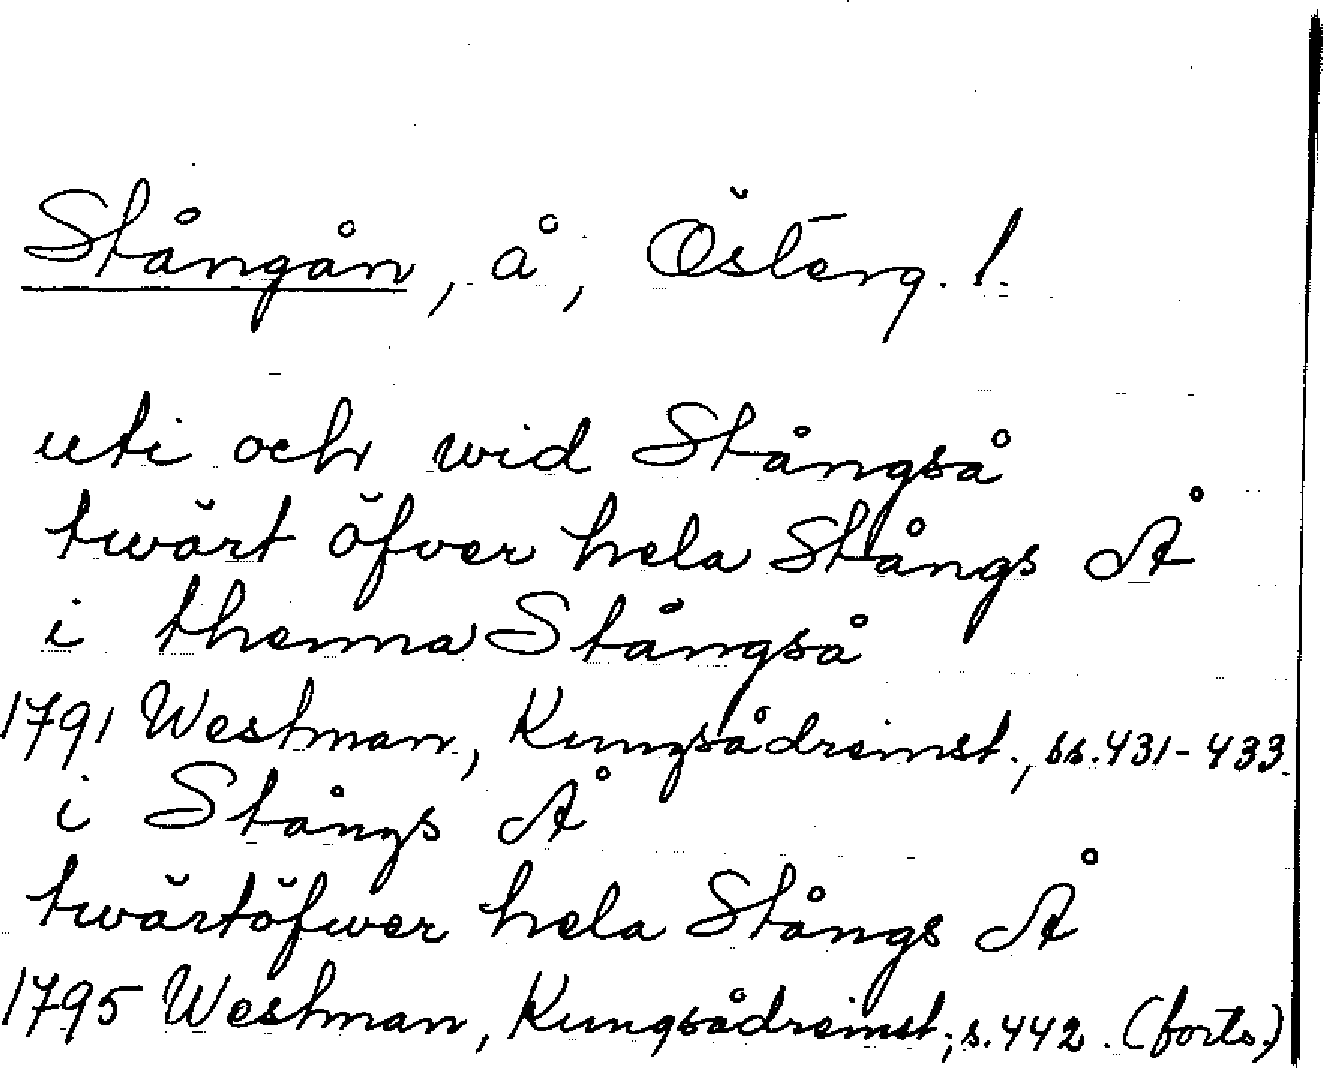 Stångån, å, Österg. l.
uti och wid Stångså
twärt öfver hela Stångs Å
i thenna Stångså
1791 Westman, Kungsådreinst., ss. 431-433.
i Stångs Å
twärtöfwer hela Stångs Å
1795 Westman, Kungsådreinst., s. 442. (forts.)